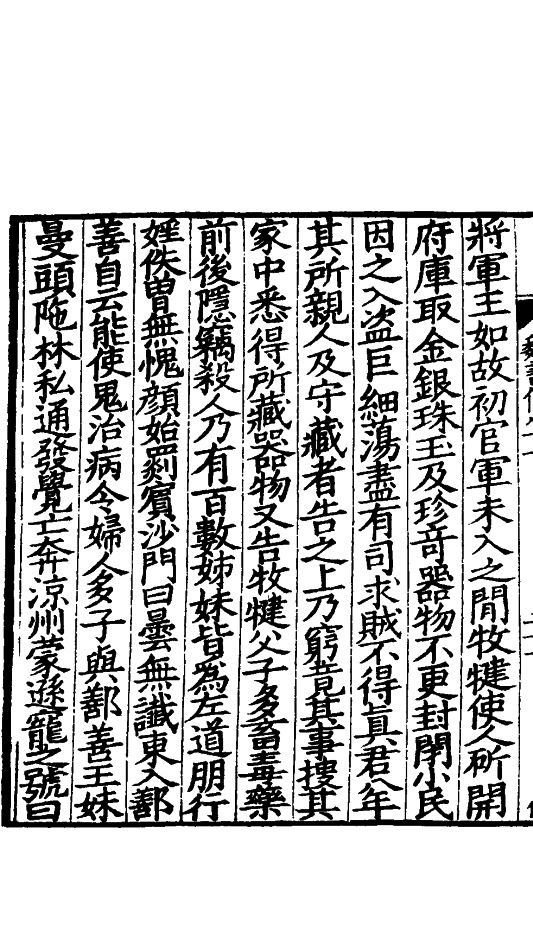 將軍王如故初官軍未入之間牧犍使人斫開
府庫取金銀珠玉及珍奇器物不更封閉小民
因之入盗巨細蕩盡有司求賊不得真君八年
其所親人及守藏者告之上乃窮竟其事搜其
家中悉得所藏器物又告牧犍父子多畜毒藥
前後隱竊殺人乃有百數姊妹皆爲左道朋行
婬佚曽無愧顔始罽賔沙門曰曇無讖東入鄯
善自云能使鬼治病令婦人多子與鄯善王妹
曼頭陁林私通發覺亡奔涼州蒙遜寵之號曰